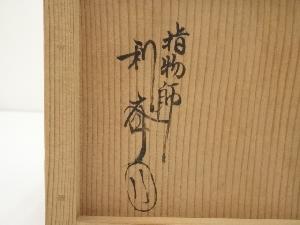 指物師
利斎